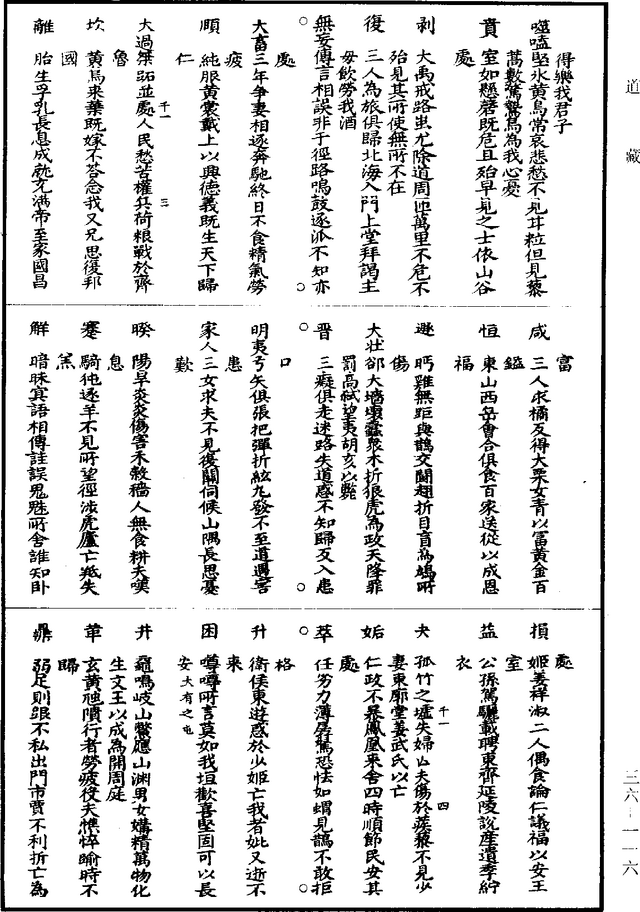 得樂我君子
噬嗑堅冰黃鳥常哀悲愁不見甘粒但見藜
蒿數驚鷙鳥為我心憂
賁　室如懸磬既危且殆早見之士依山谷
處
剥　大禹戒路蚩尤除道周匝萬里不危不
殆見其所使無所不在
復　三人為旅俱歸北海入門上堂拜謁主
母飲勞我酒
無妄傳言相誤非于徑路鳴鼓逐狐不知亦
處
大畜三年爭妻相逐奔馳終日不食精氣勞
疲
頤　純服黃裳戴上以興德義既生天下歸
仁
大過桀跖並處人民愁苦擁兵荷粮戰於齊
魯
坎　黃鳥來集既嫁不答念我父兄思復邦
國
離　胎生孚乳長息成就充滿帝至家國昌
富
咸　三人求橘反得大栗女青以富黃金百
鎰
恒　東山西岳會合俱食百家送從以成恩
福
遯　眄雞無距與鵲交鬪翅折目盲為鳩所
傷
大壯卻大墻壞蠹衆木折狼虎為政天降罪
罰高弒望夷胡亥以斃
晋　三癡俱走迷路失道惑不知歸反入患
口
明夷弓矢俱張把彈折絃丸發不至道遇害
患
家人三女求夫不見復關伺候山隅長思憂
歎
睽　陽旱炎炎傷害禾穀穡人無食耕夫嘆
息
蹇　騎㹠逐羊不見所望徑涉虎廬亡羝失
羔
解　暗昧冥語相傳詿誤鬼魅所舍誰知卧
處
損　姬姜祥淑二人偶食論仁議福以安王
室
益　公孫駕驪載聘東齊延陵說産遺季紵
衣
夬　孤竹之墟失婦亡夫傷於蒺藜不見少
妻東郭棠姜武氏以亡
姤　仁政不暴鳳凰來舍四時順節民安其
處
萃　任劣力薄孱駑恐怯如蝟見鵲不敢拒
格
升　衛侯東遊惑於少姬亡我考妣又逝不
來
困　噂噂所言莫如我垣歡喜堅固可以長
安大有之屯
井　黿鳴岐山鱉應山淵男女媾精萬物化
生文王以成為開周庭
革　玄黄虺隤行者勞疲役夫憔悴踰時不
歸
鼎　弱足則跟不私出門市賈不利折亡為
千一　三
千一　四
道藏
三六—一一六